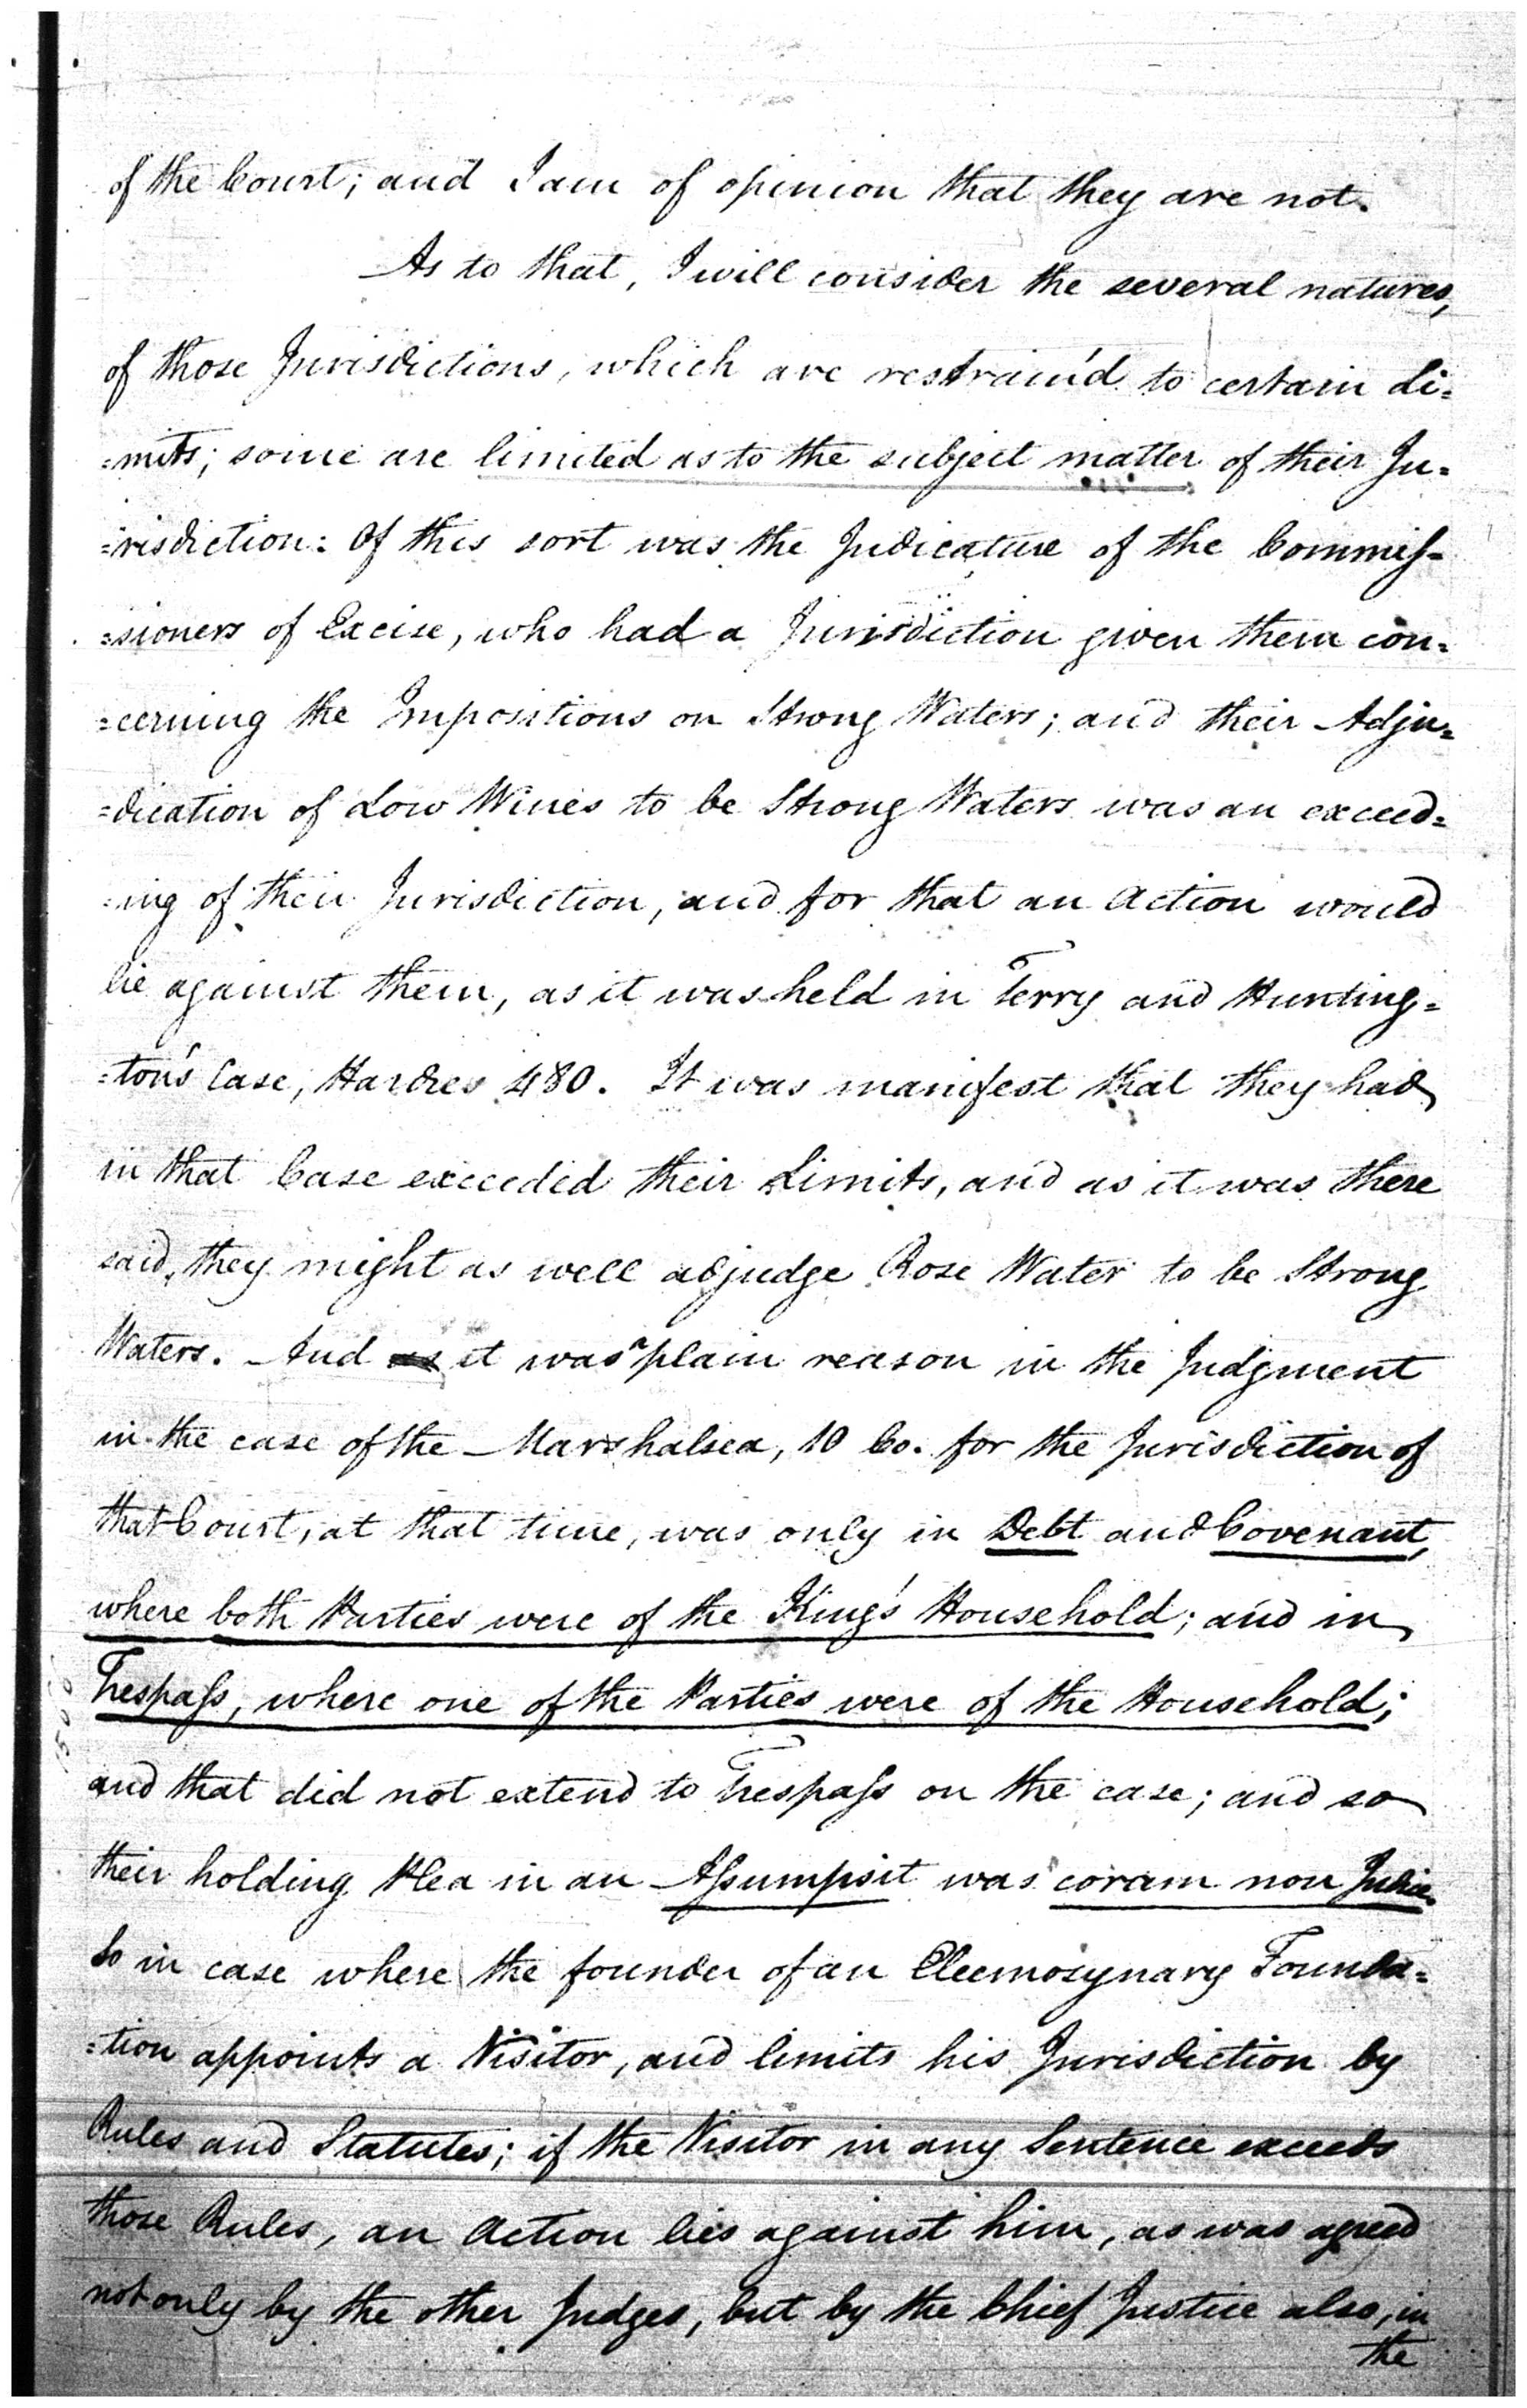 of the Court; and I am of opinion that they are not.
As to that, I will consider the several natures,
of those Jurisdictions, which are restrain'd to certain Li=
=mits; some are limited as to the subject matter of their Ju=
=risdiction: Of this sort was the Judicature of the Commiſ=
=sioners of Excise, who had a Jurisdiction given them con=
=cerning the Impositions on Strong Waters; and their Adju=
=dication of Low Wines to be Strong Waters was an exceed=
=ing of their Jurisdiction, and for that an Action would
lie against them, as it was held in Terry and Hunting=
=ton's Case, Hardres 480. It was manifest that they had
in that Case exceeded their Limits, and as it was there
said, they might as well adjudge Rose Water to be Strong
Waters. And as it was a plain reason in the Judgment
in the case of the Marshalsea, 10 Co. for the Jurisdiction of
that Court, at that time, was only in Debt and Covenant,
where both Parties were of the King's Household; and in
Trespaſs, where one of the Parties were of the Household;
and that did not extend to Trespaſs on the case; and so
their holding Plea in an Aſsumpsit was coram non Judice.
So in case where the founder of an Eleemosynary Founda=
=tion appoints a Visitor, and limits his Jurisdiction by
Rules and Statutes; if the Visitor in any Sentence exceeds
those Rules, an Action lies against him, as was agreed
not only by the other Judges, but by the Chief Justice also, in
the